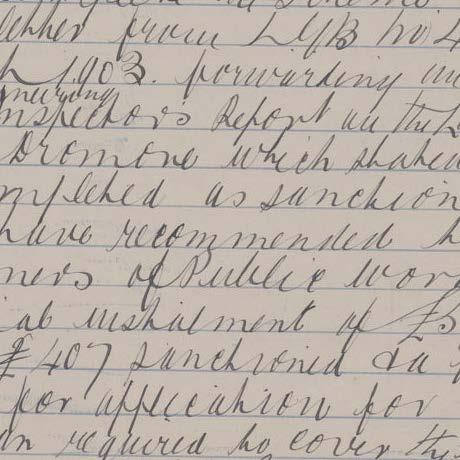 letter from LGB No 4
1903. forwarding
Inspectors Report on the
Dromone which stated
mpleted as sanction
have recommended
ners of Public Wor
ial instalment of £5
£407 sanctioned
for application for
an required to cover the